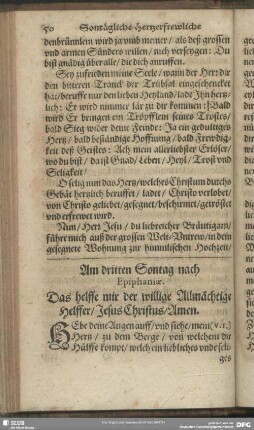 50 Sontägliche Hertzerfrewliche
denbrünnlein wird ja vmb meiner / als deß grossen
vnd armen Sünders willen / nich verseygen: Du
bist gnädig über alle / die dich anruffen.
Sey zufrieden meine Seele / wann der Herr dir
den bittern Tranck der Trübsal eingeschencket
hat / beruffe nur den lieben Heyland / lade Jhn hertz-
lich: Er wird nimmer lär zu dir kommen: Bald
wird Er bringen ein Tröpfflein seines Trostes /
bald Sieg wider deine Feinde: Ja ein gedultiges
Hertz / bald beständige Hoffnung / bald Frewdig-
keit deß Geistes: Ach mein allerliebster Erlöser /
wo du bist / da ist Gnad / Leben / Heyl / Trost vnd
Seligkeit /
O selig nun das Hertz / welches Christum durchs
Gebät herzlich beruffet / ladet / Christo verlobet /
von Christo geliebet / gesegnet / beschirmet / getröstet
vnd erfrewet wird.
Nun / Herr Jesu / du liebreicher Bräutigam /
führe mich auß der grossen Welt-Vnrew / in dein
gesegnete Wohnung zur himmlischen Hochzeit /
Am dritten Sontag nach
Epiphaniæ.
Das helffe mir der willige Allmächtige
Helffer / Jesus Christus / Amen.
HEbe deine Augen auff / vnd siehe / mein (v. 1.)
Hertz / zu dem Berge / von welchem dir
Hülffe kompt / welch ein liebliches vnd seli-
ges
SLUB
DFG